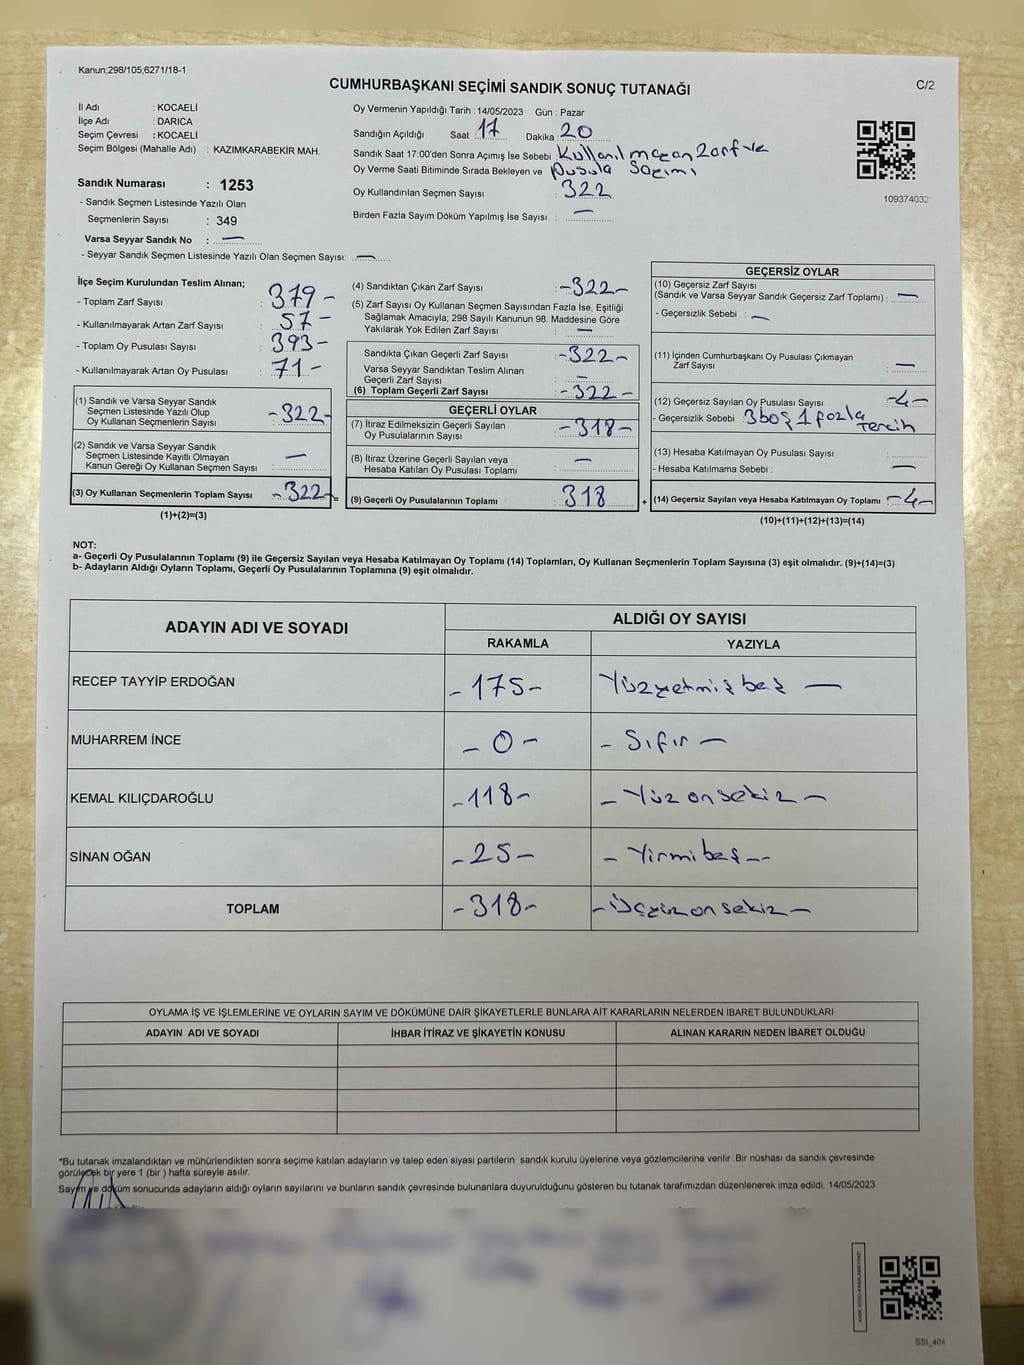 Kanun;298/105;6271/18-1
CUMHURBAŞKANI SEÇİMİ SANDIK SONUÇ TUTANAĞI
C/2
İl Adı : KOCAELİ
İlçe Adı : DARICA
Seçim Çevresi : KOCAELİ
Seçim Bölgesi (Mahalle Adı) : KAZIMKARABEKİR MAH.
Sandık Numarası : 1253
- Sandık Seçmen Listesinde Yazılı Olan
Seçmenlerin Sayısı : 349
Varsa Seyyar Sandık No : —
- Seyyar Sandık Seçmen Listesinde Yazılı Olan Seçmen Sayısı: —
Oy Vermenin Yapıldığı Tarih : 14/05/2023 Gün : Pazar
Sandığın Açıldığı Saat : 17 Dakika : 20
Sandık Saat 17:00'den Sonra Açımış İse Sebebi : Kullanılmazan zarf ve
Oy Verme Saati Bitiminde Sırada Bekleyen ve Pusula Sayımı
Oy Kullandırılan Seçmen Sayısı : 322
Birden Fazla Sayım Döküm Yapılmış İse Sayısı : —
109374032
İlçe Seçim Kurulundan Teslim Alınan;
- Toplam Zarf Sayısı : 379 -
- Kullanılmayarak Artan Zarf Sayısı : 57 -
- Toplam Oy Pusulası Sayısı : 393-
- Kullanılmayarak Artan Oy Pusulası : 71-
(1) Sandık ve Varsa Seyyar Sandık
Seçmen Listesinde Yazılı Olup
Oy Kullanan Seçmenlerin Sayısı -322-
(2) Sandık ve Varsa Seyyar Sandık
Seçmen Listesinde Kayıtlı Olmayan
Kanun Gereği Oy Kullanan Seçmen Sayısı : —
(3) Oy Kullanan Seçmenlerin Toplam Sayısı -322-
(1)+(2)=(3)
(4) Sandıktan Çıkan Zarf Sayısı : -322-
(5) Zarf Sayısı Oy Kullanan Seçmen Sayısından Fazla İse, Eşitliği
Sağlamak Amacıyla; 298 Sayılı Kanunun 98. Maddesine Göre
Yakılarak Yok Edilen Zarf Sayısı : —
Sandıkta Çıkan Geçerli Zarf Sayısı : -322-
Varsa Seyyar Sandıktan Teslim Alınan
Geçerli Zarf Sayısı : —
(6) Toplam Geçerli Zarf Sayısı : -322-
GEÇERLİ OYLAR
(7) İtiraz Edilmeksizin Geçerli Sayılan
Oy Pusulalarının Sayısı : -318-
(8) İtiraz Üzerine Geçerli Sayılan veya
Hesaba Katılan Oy Pusulası Toplamı : —
= (9) Geçerli Oy Pusulalarının Toplamı 318
GEÇERSİZ OYLAR
(10) Geçersiz Zarf Sayısı
(Sandık ve Varsa Seyyar Sandık Geçersiz Zarf Toplamı) : —
- Geçersizlik Sebebi : —
(11) İçinden Cumhurbaşkanı Oy Pusulası Çıkmayan
Zarf Sayısı : —
(12) Geçersiz Sayılan Oy Pusulası Sayısı : -4-
- Geçersizlik Sebebi : 3 boş 1 fazla
tercih
(13) Hesaba Katılmayan Oy Pusulası Sayısı :
- Hesaba Katılmama Sebebi : —
+ (14) Geçersiz Sayılan veya Hesaba Katılmayan Oy Toplamı -4-
(10)+(11)+(12)+(13)=(14)
NOT:
a- Geçerli Oy Pusulalarının Toplamı (9) ile Geçersiz Sayılan veya Hesaba Katılmayan Oy Toplamı (14) Toplamları, Oy Kullanan Seçmenlerin Toplam Sayısına (3) eşit olmalıdır. (9)+(14)=(3)
b- Adayların Aldığı Oyların Toplamı, Geçerli Oy Pusulalarının Toplamına (9) eşit olmalıdır.
ADAYIN ADI VE SOYADI ALDIĞI OY SAYISI
RAKAMLA YAZIYLA
RECEP TAYYİP ERDOĞAN -175- Yüzyetmiş beş —
MUHARREM İNCE - 0 - - Sıfır -
KEMAL KILIÇDAROĞLU -118- - Yüz onsekiz -
SİNAN OĞAN -25- - Yirmi beş --
TOPLAM -318- -Üçyüz on sekiz-
OYLAMA İŞ VE İŞLEMLERİNE VE OYLARIN SAYIM VE DÖKÜMÜNE DAİR ŞİKAYETLERLE BUNLARA AİT KARARLARIN NELERDEN İBARET BULUNDUKLARI
ADAYIN ADI VE SOYADI İHBAR İTİRAZ VE ŞİKAYETİN KONUSU ALINAN KARARIN NEDEN İBARET OLDUĞU
*Bu tutanak imzalandıktan ve mühürlendikten sonra seçime katılan adayların ve talep eden siyasi partilerin sandık kurulu üyelerine veya gözlemcilerine verilir. Bir nüshası da sandık çevresinde
görülecek bir yere 1 (bir ) hafta süreyle asılır.
Sayım ve döküm sonucunda adayların aldığı oyların sayılarını ve bunların sandık çevresinde bulunanlara duyurulduğunu gösteren bu tutanak tarafımızdan düzenlenerek imza edildi. 14/05/2023